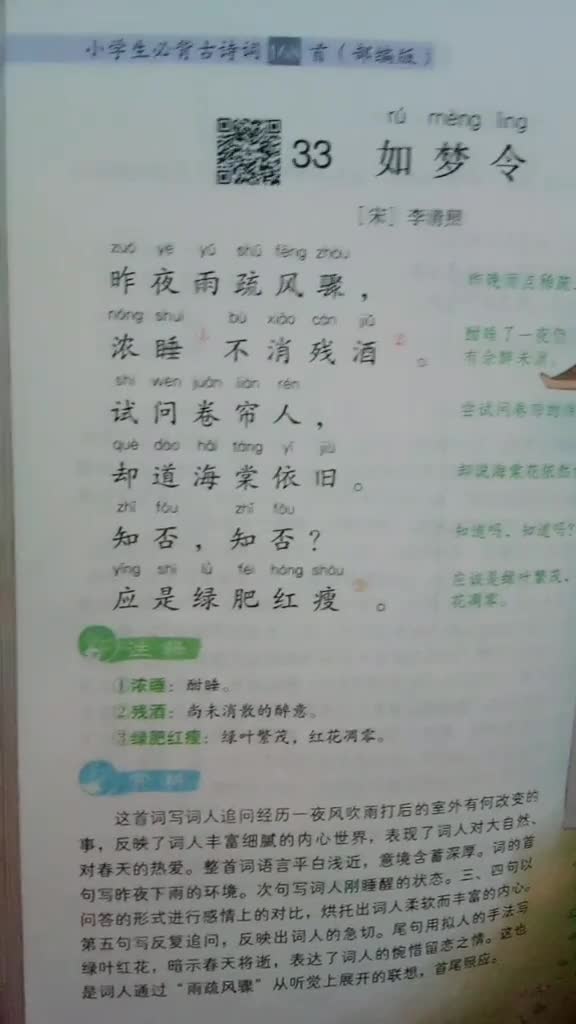 小学生必背古诗词 首（部编版）
rú mèng lìng
33 如梦令
［宋］李清照
zuó yè yǔ shū fēng zhòu
昨夜雨疏风骤，
昨晚雨点稀疏
nóng shuì bù xiāo cán jiǔ
浓睡①不消残酒②。
酣睡了一夜
有余醉未消。
shì wèn juǎn lián rén
试问卷帘人，
尝试问卷帘的
què dào hǎi táng yī jiù
却道海棠依旧。
却说海棠花依然
zhī fǒu zhī fǒu
知否，知否？
知道吗，知道吗？
yīng shì lǜ féi hóng shòu
应是绿肥红瘦③。
应该是绿叶繁茂，
花凋零。
注释
①浓睡：酣睡。
②残酒：尚未消散的醉意。
③绿肥红瘦：绿叶繁茂，红花凋零。
赏析
这首词写词人追问经历一夜风吹雨打后的室外有何改变的
事，反映了词人丰富细腻的内心世界，表现了词人对大自然、
对春天的热爱。整首词语言平白浅近，意境含蓄深厚。词的首
句写昨夜下雨的环境。次句写词人刚睡醒的状态。三、四句以
问答的形式进行感情上的对比，烘托出词人柔软而丰富的内心。
第五句写反复追问，反映出词人的急切。尾句用拟人的手法写
绿叶红花，暗示春天将逝，表达了词人的惋惜留恋之情。这也
是词人通过“雨疏风骤”从听觉上展开的联想，首尾照应。